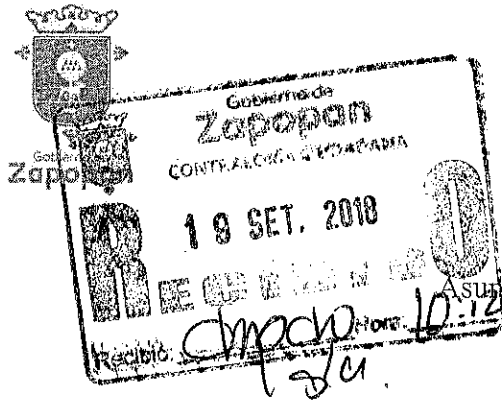 Gobierno de
Zapopan
Gobierno de
Zapopan
CONTRALORÍA CIUDADANA
19 SET. 2018
RECIBIDO
Asun
Recibió: Hora: 10:12